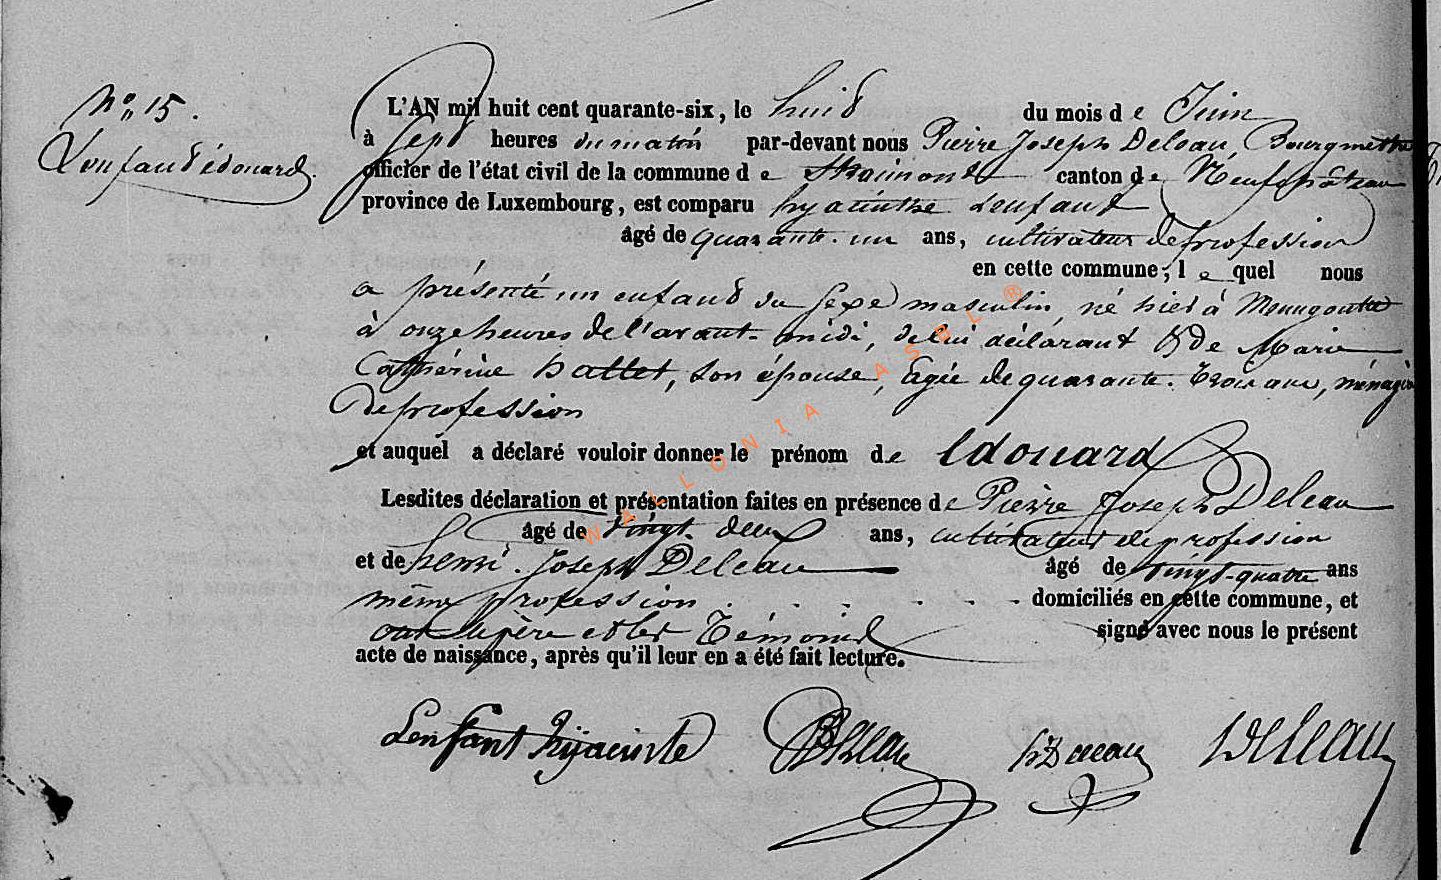 N° 15.
Lenfant édouard.
L'AN mil huit cent quarante-six, le huit du mois de Juin
à sept heures du matin par-devant nous Pierre Joseph Deleau, Bourgmestre
officier de l'état civil de la commune de Straimont canton de Neufchâteau
province de Luxembourg, est comparu hyacinthe Lenfant
âgé de quarante-un ans, cultivateur de profession
en cette commune; lequel nous
a présenté un enfant du sexe masculin, né hier à Menugoutte
à onze heures de l'avant-midi, de lui déclarant & de Marie
Cathérine hallet, son épouse, agée de quarante-trois ans, ménagère
de profession
et auquel a déclaré vouloir donner le prénom de Edouard
Lesdites déclaration et présentation faites en présence de Pierre Joseph Deleau
âgé de vingt-deux ans, cultivateur de profession
et de henri-Joseph Deleau âgé de vingt-quatre ans
même profession . . . . . . domiciliés en cette commune, et
ont le père et les Témoins signé avec nous le présent
acte de naissance, après qu'il leur en a été fait lecture.
Lenfant hyacinte Deleau hDeleau Deleau
WALLONIA ASBL ®